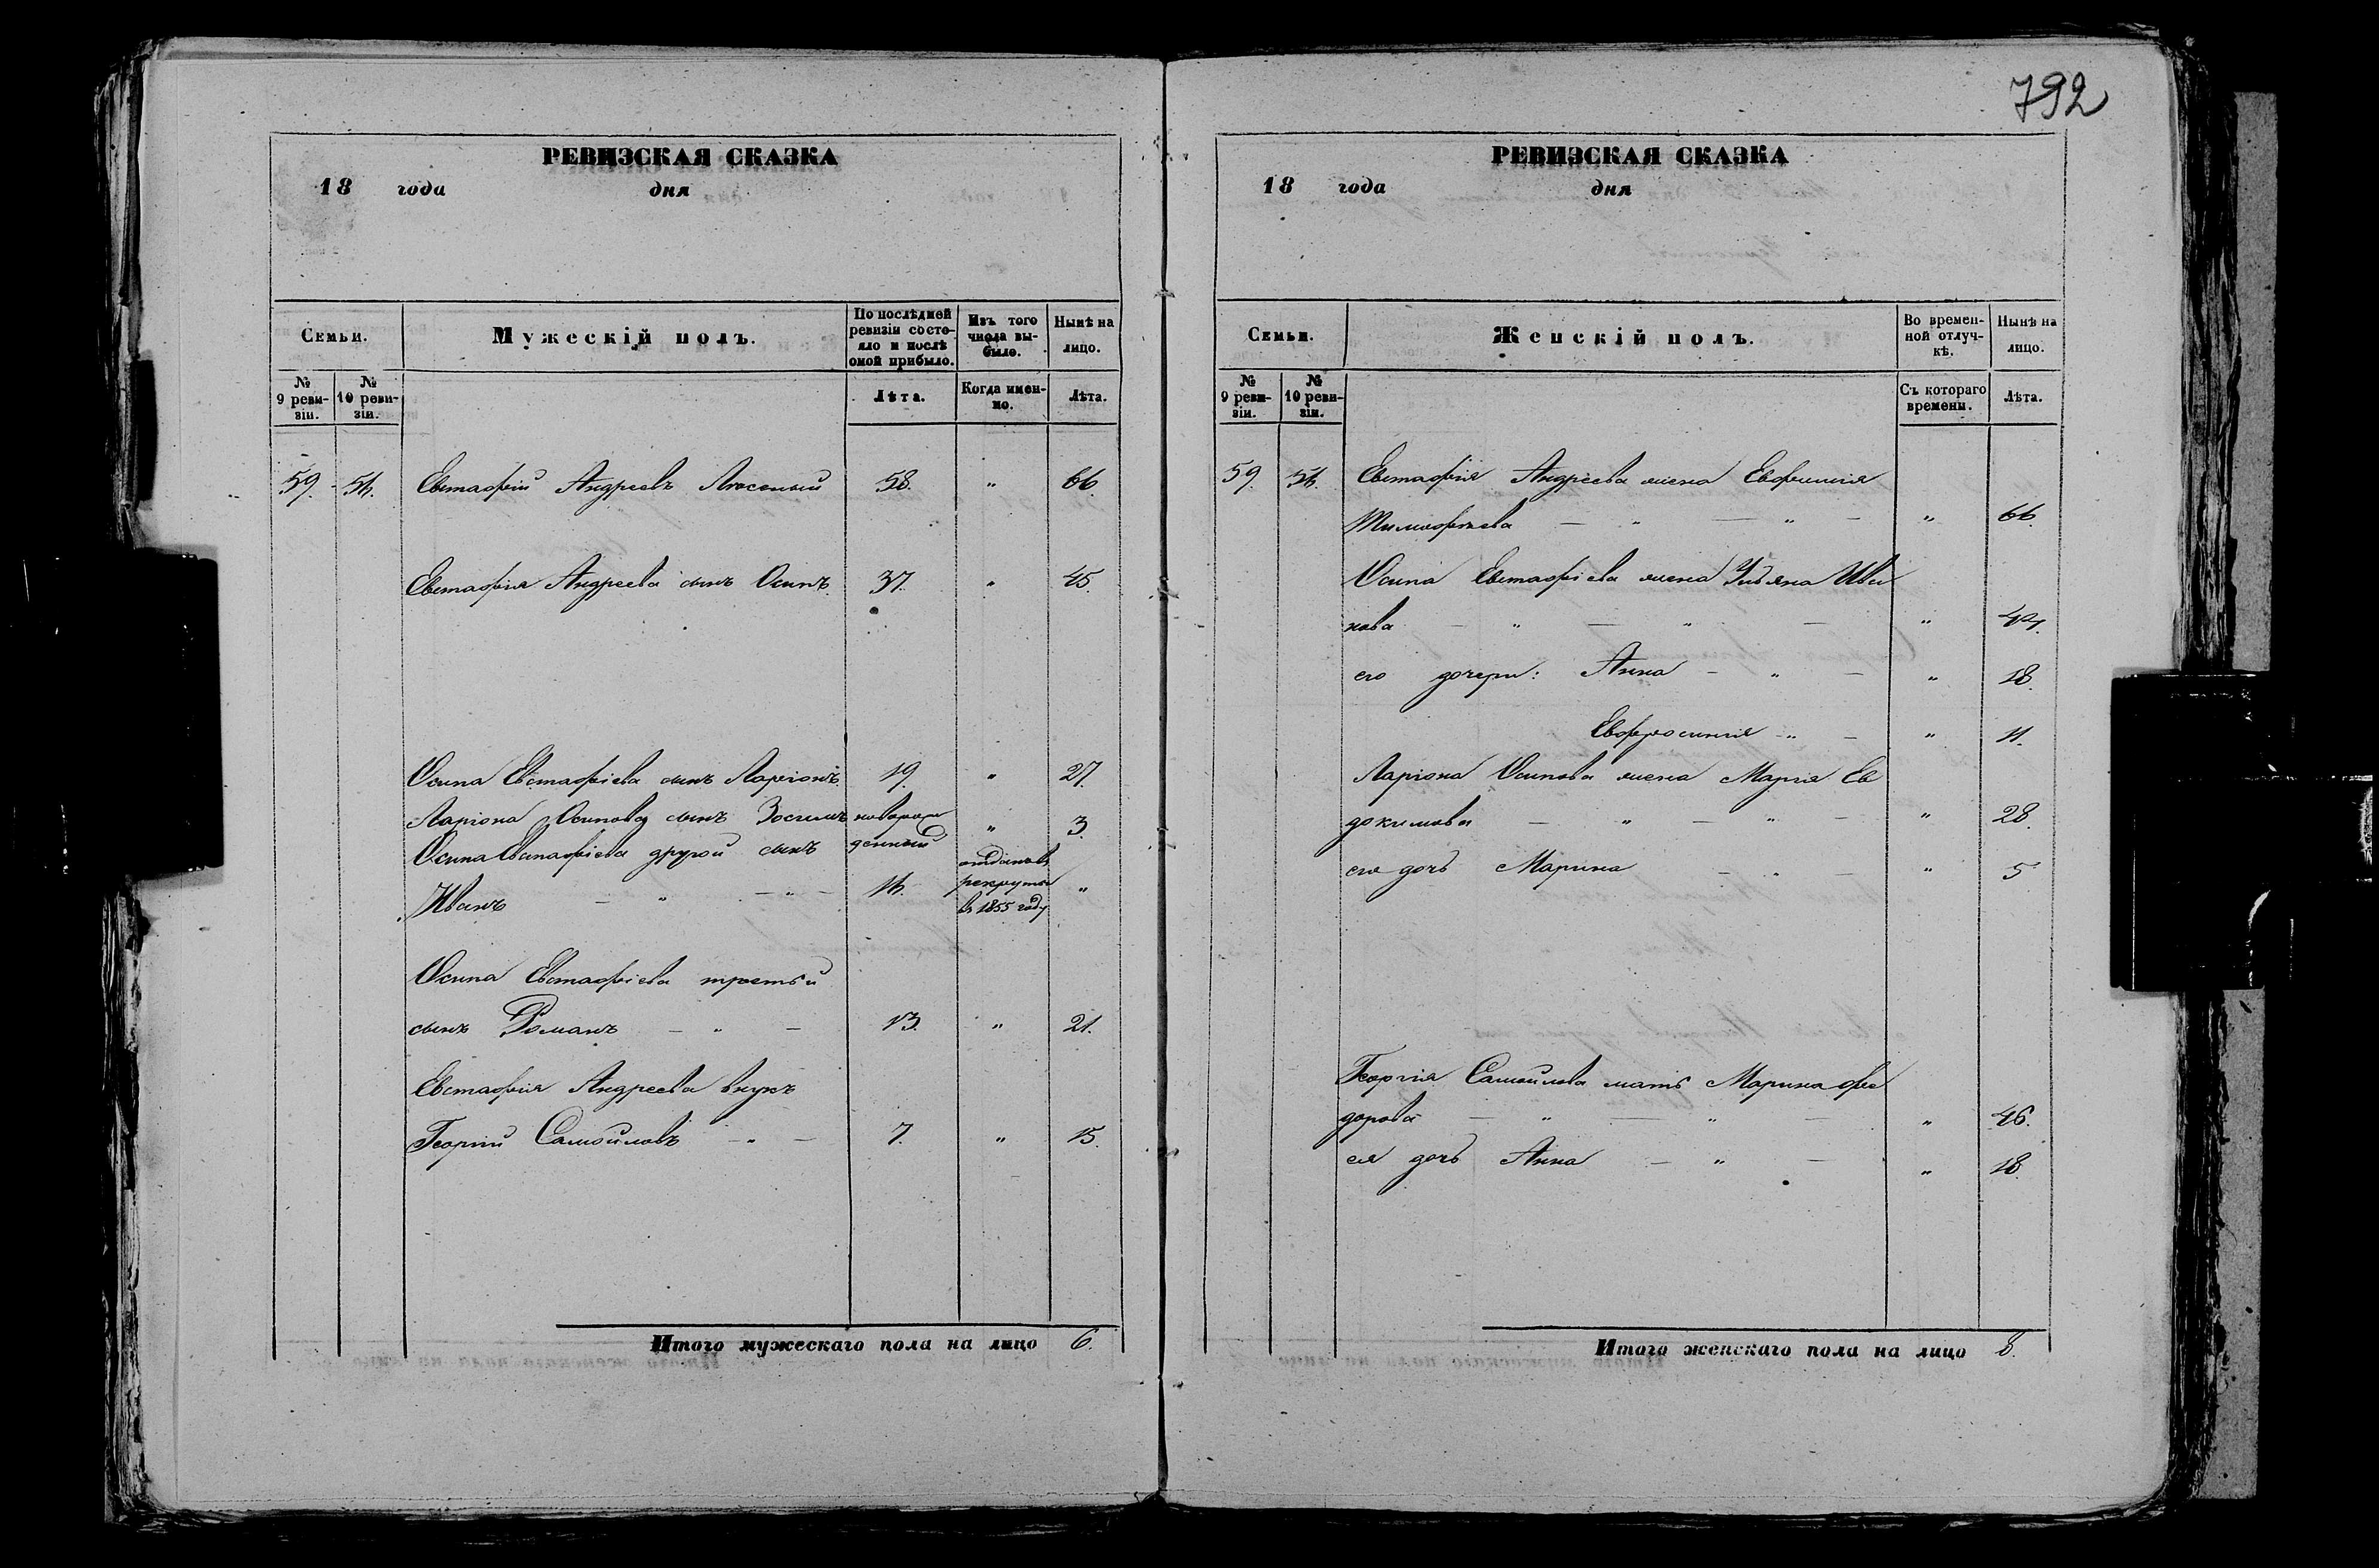 792
РЕВИЗСКАЯ СКАЗКА
18 года дня
Семьи.
Мужескій полъ.
По послѣдней ревизіи состояло и послѣ оной прибыло.
Изъ того числа выбыло.
Нынѣ на лицо.
№ 9 ревизіи.
№ 10 ревизіи.
Лѣта.
Когда именно.
Лѣта.
59. 54. Евстафій Андреевъ 58. " 66.
Евстафія Андреева сынъ Осипъ. 37. " 45.
Осипа Евстафіева сынъ Ларіонъ. 19. " 27.
Ларіона Осипова сынъ Зосимъ новорож
денный " 3.
Осипа Евстафіева другой сынъ
Иванъ — " — " — 14. отданъ въ рекруты въ 1855 году "
Осипа Евстафіева третьи
сынъ Романъ — " — 13. " 21.
Евстафія Андреева внукъ
Георгій Самойловъ — " — 7. " 15.
Итого мужескаго пола на лицо 6.
РЕВИЗСКАЯ СКАЗКА
18 года дня
Семьи.
Женскій полъ.
Во временной отлучкѣ.
Нынѣ на лицо.
№ 9 ревизіи.
№ 10 ревизіи.
Съ котораго времени.
Лѣта.
59. 54. Евстафія Андреева жена Евфимія
Тимофѣева — " — " — " 66.
Осипа Евстафіева жена Ульяна Ива
нова — " — " — " 44.
его дочери: Анна — " — " 18.
Евфросинія — " — " 11.
Ларіона Осипова жена Марія Ев
докимова — " — " — " 28.
его дочь Марина — " — " 5
Георгія Самойлова мать Марина Фе
дорова — " — " — " 46.
ея дочь Анна — " — " 18.
Итого женскаго пола на лицо 8.